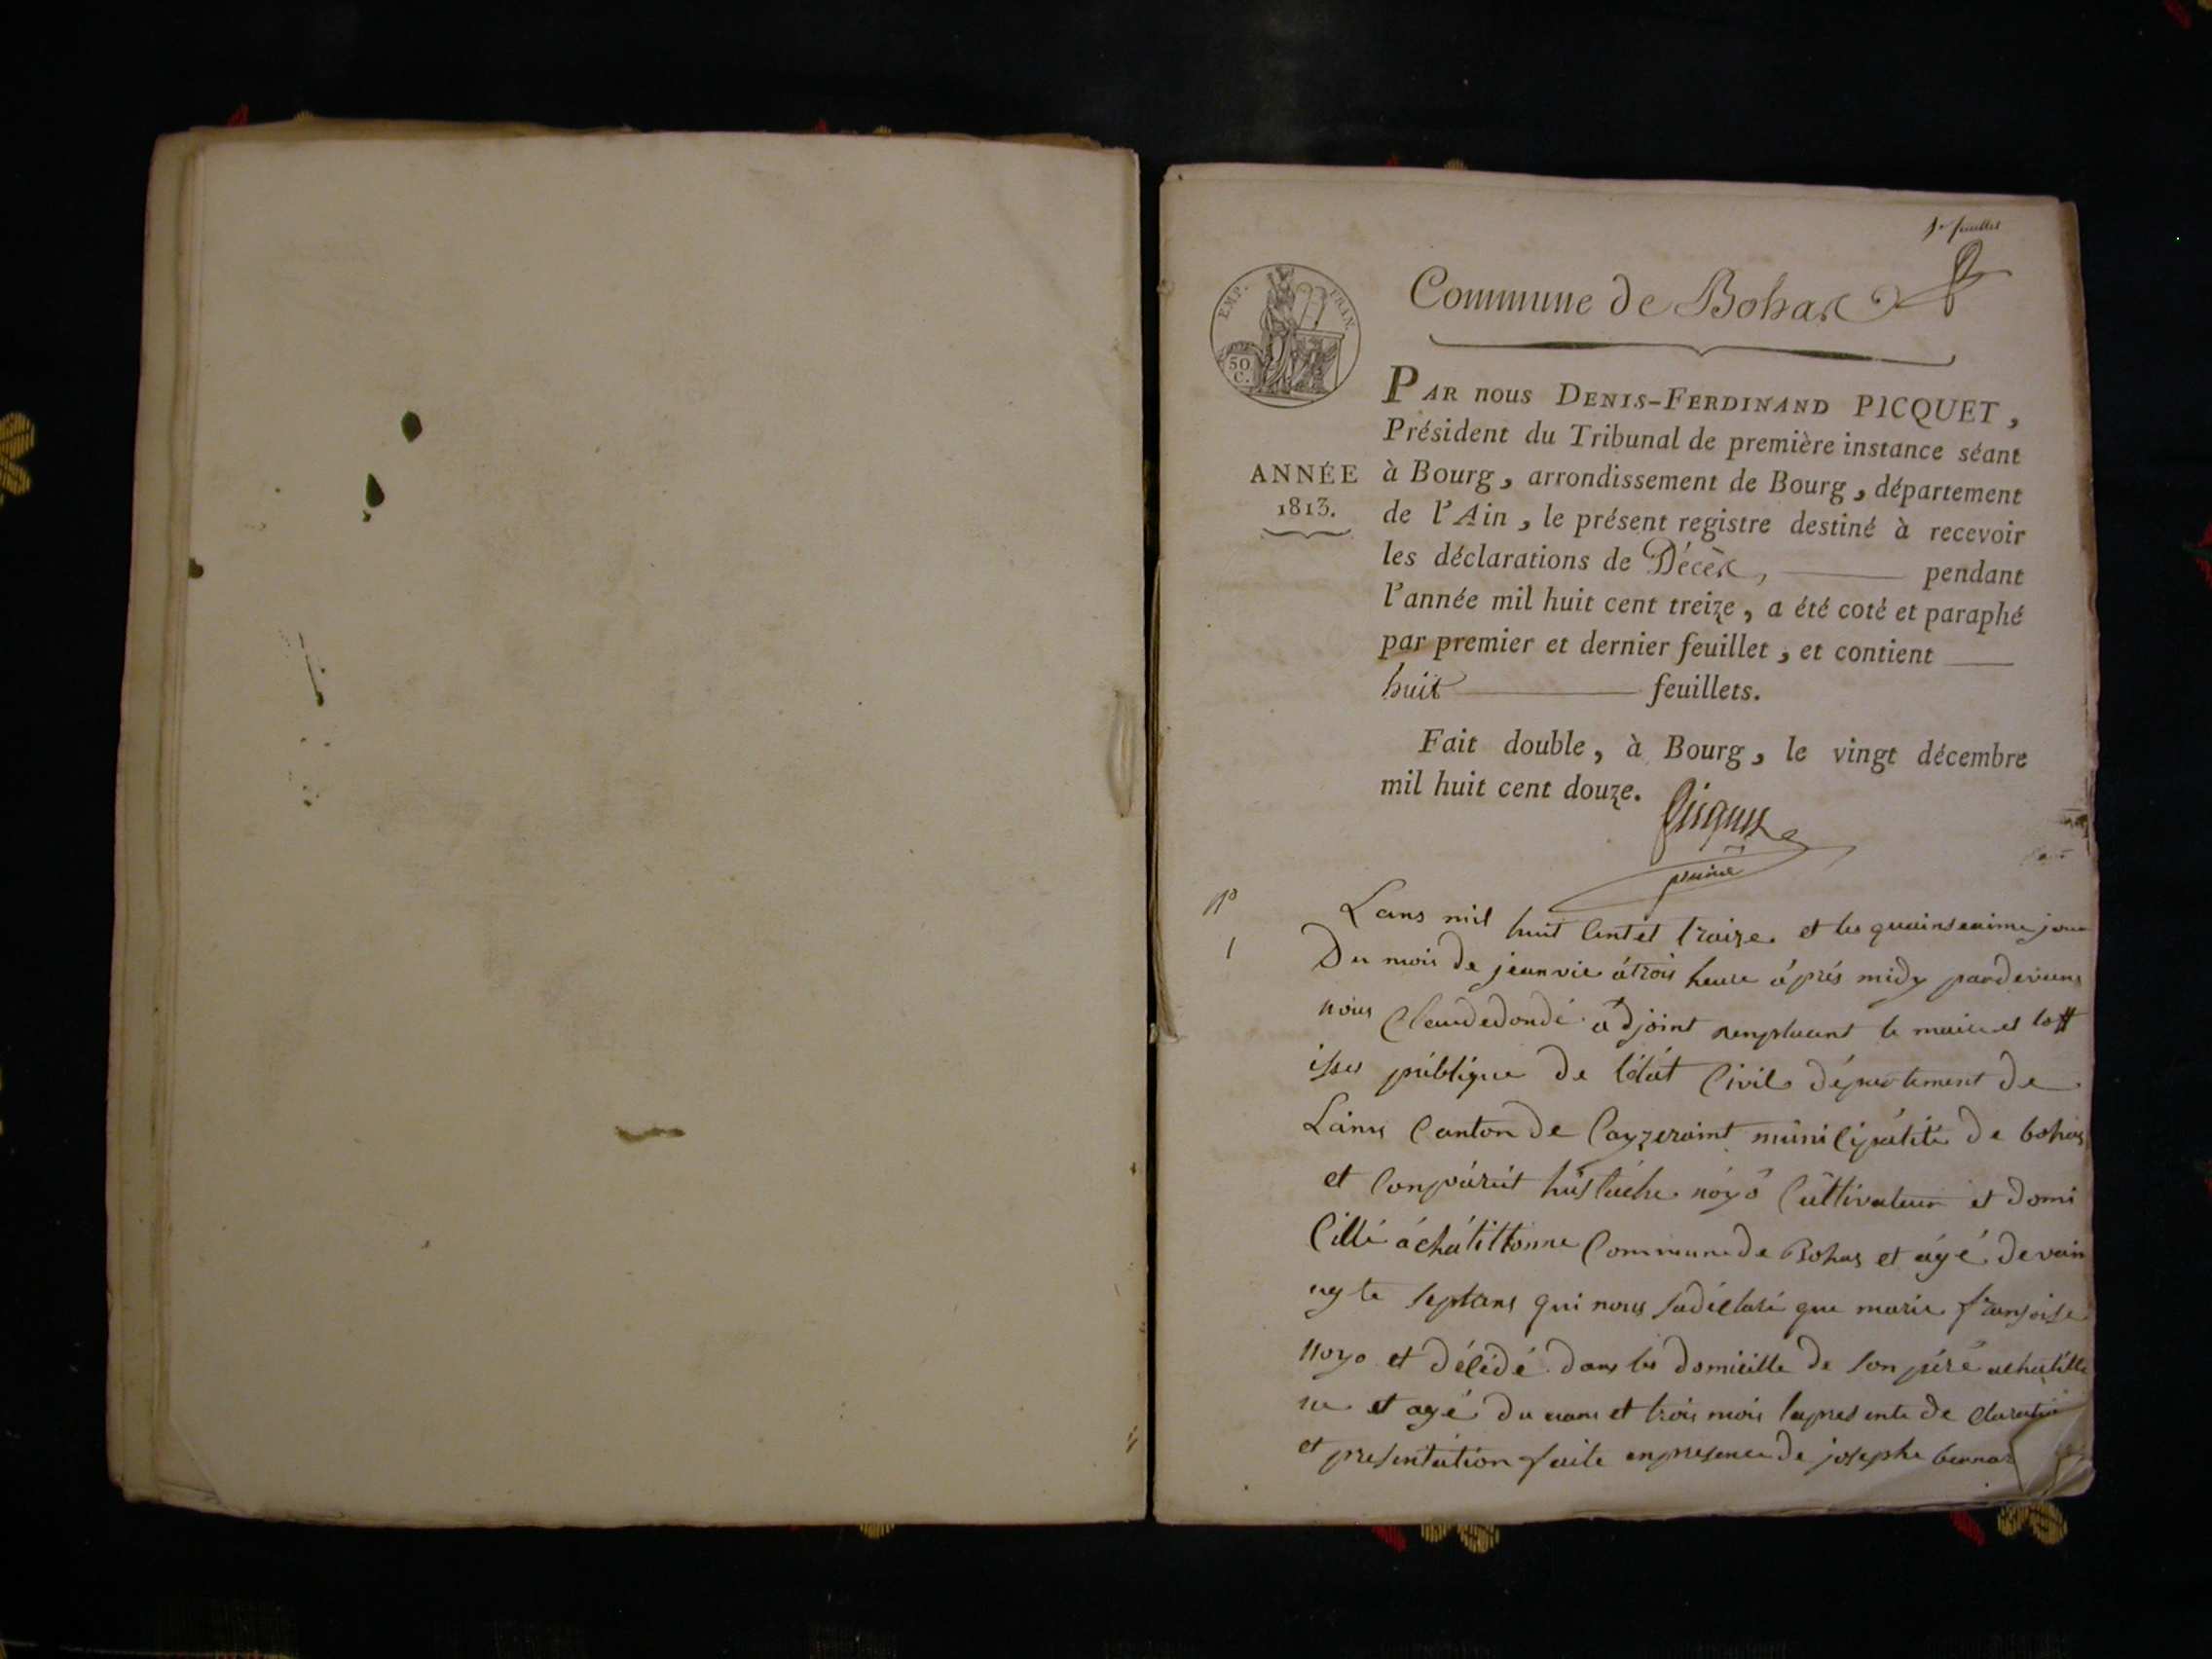 1er feuillet
Commune de Bohas
EMP. FRAN.
50
C.
PAR nous DENIS-FERDINAND PICQUET,
Président du Tribunal de première instance séant
ANNÉE
1813.
à Bourg, arrondissement de Bourg, département
de l'Ain, le présent registre destiné à recevoir
les déclarations de Décès, pendant
l'année mil huit cent treize, a été coté et paraphé
par premier et dernier feuillet, et contient
huit feuillets.
Fait double, à Bourg, le vingt décembre
mil huit cent douze.
Picquet
No
1
Lans mil huit Centet traize et les quainseaime jour
Du mois de jeanvié átrois heure áprés midy pardevans
nous Claudedondé adjoint remplacent le maire et loff
isser publique de létat Civil département de
Lains Canton de Cayzeraint municipalité de bohas
et Conparut hustache noyo Cultivateur et domi
Cillé áchátittonne Commune de Bohas et ágé de vain
ngte septans qui nous Sadéclaré que marie fransoise
noyo et déCédé dans les domicille de son péré achatille
ne et agé du nans et trois mois lapresente de claration
et presentátion faite enpresence de josephe bernar